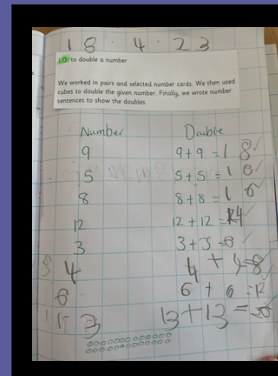 18.4.23
LO: to double a number
We worked in pairs and selected number cards. We then used
cubes to double the given number. Finally, we wrote number
sentences to show the doubles.
Number Double
9 9+9=18
5 5+5=10
8 8+8=16
12 12+12=
3 3+3=6
4 4+4=8
6 6+6=12
13 13+13=